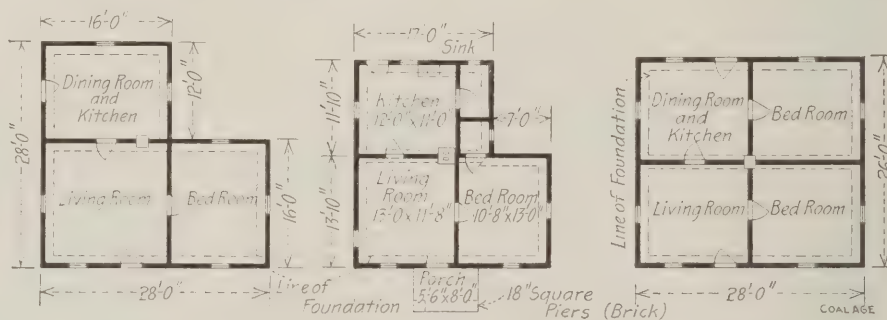 16'-0"
28'-0"
Dining Room
and
Kitchen
12'-0"
Living Room
Bed Room
16'-0"
28'-0"
Line of
Foundation
Sink
11'-10"
Kitchen
12'-0" x 11'-0"
7'-0"
13'-10"
Living
Room
13'-0 x 11'-8"
Bed Room
10'-8" x 13'-0"
Porch
5'-6" x 8'-0"
18" Square
Piers (Brick)
Line of Foundation
Dining Room
and
Kitchen
Bed Room
Living Room
Bed Room
26'-0"
28'-0"
COAL AGE